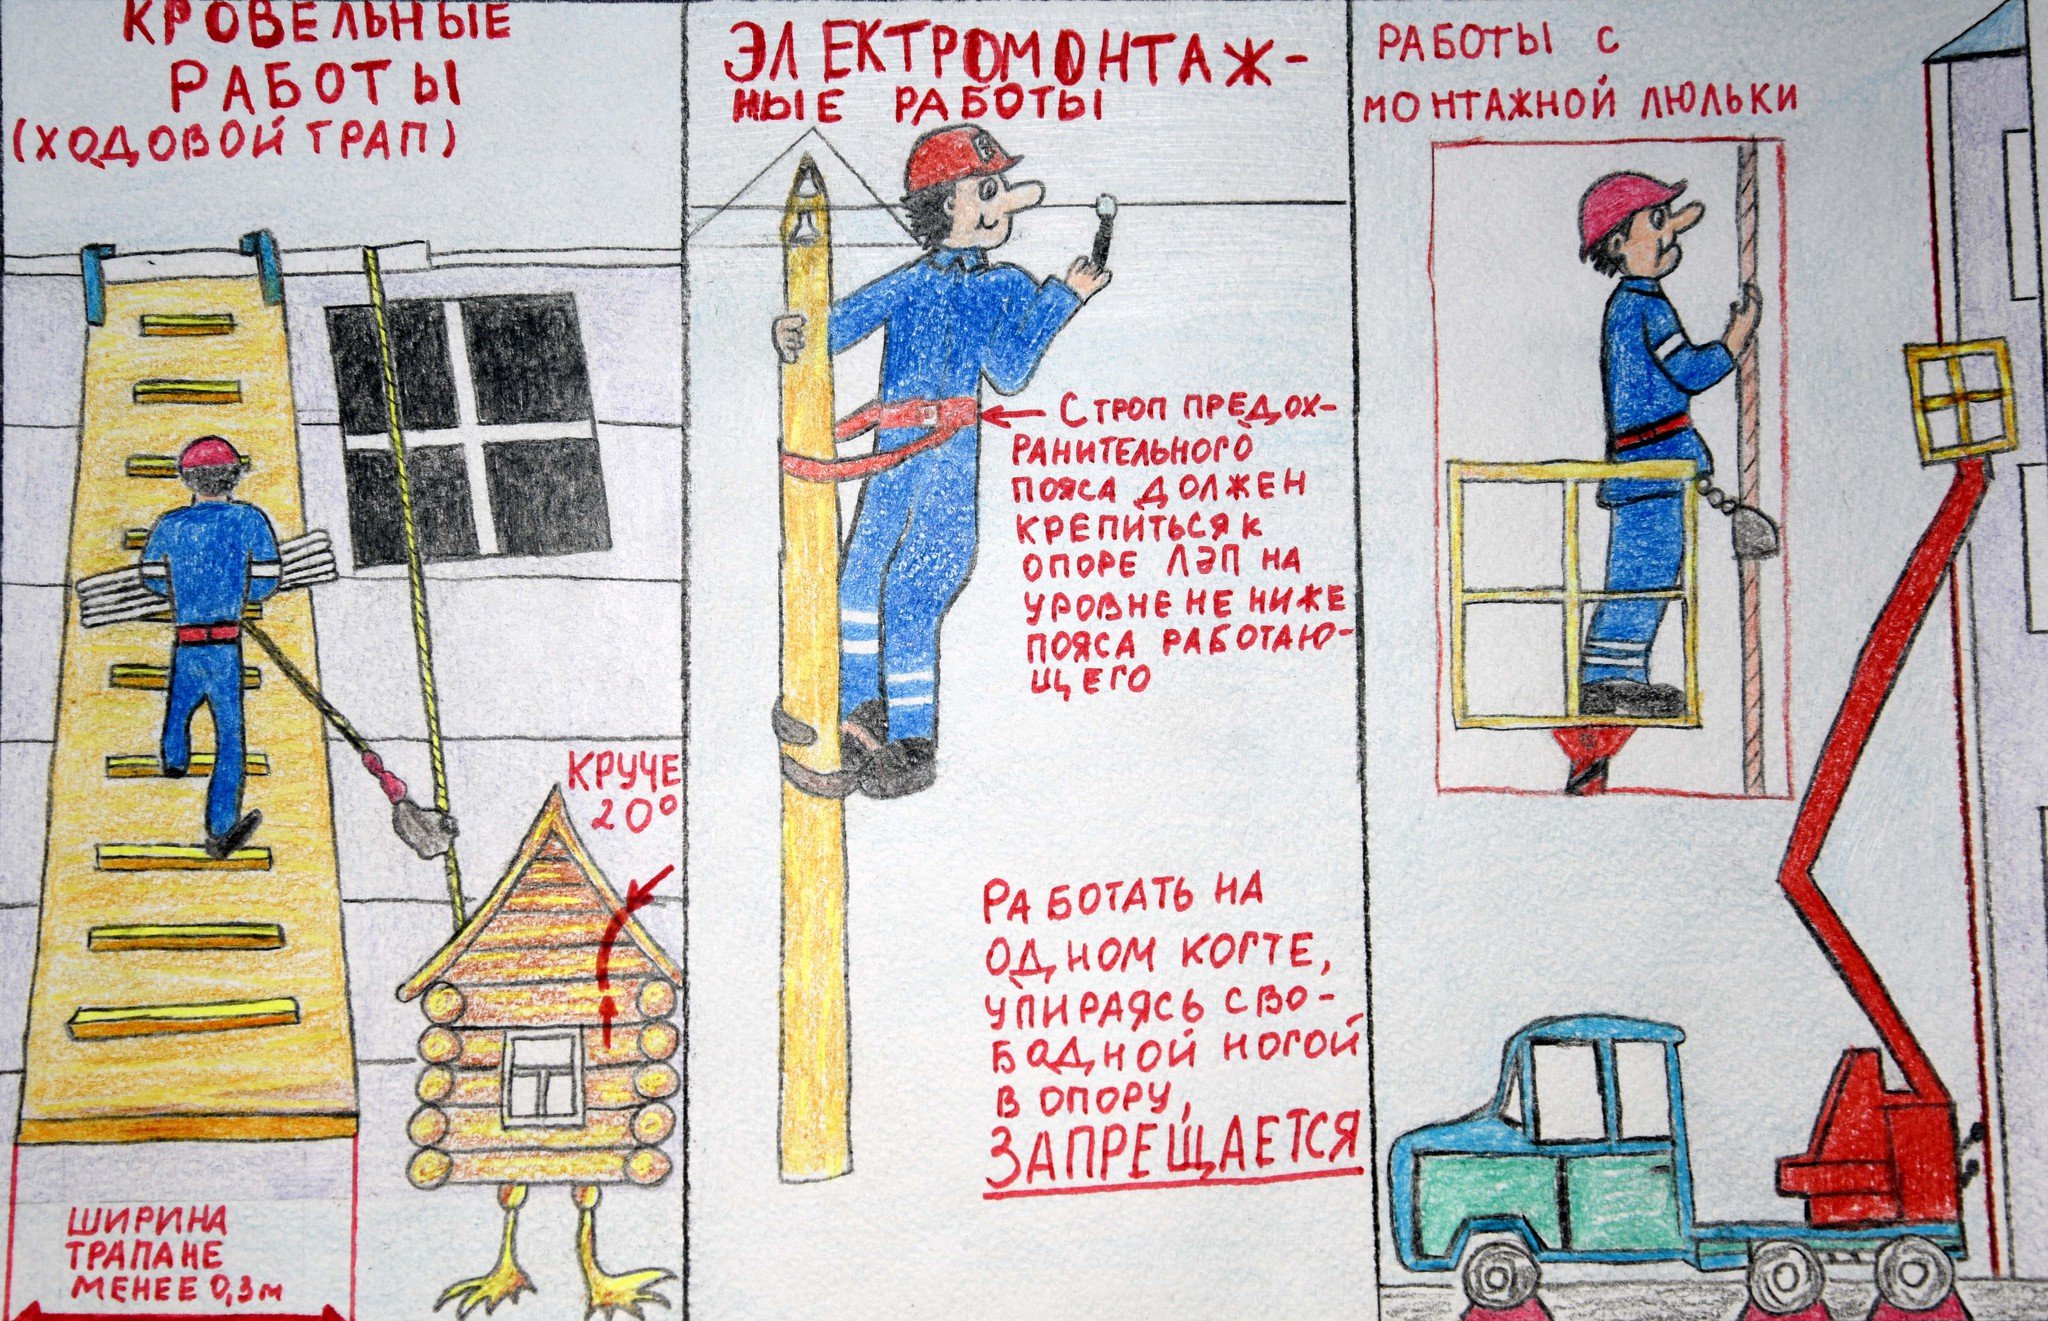 КРОВЕЛЬНЫЕ
РАБОТЫ
(ХОДОВОЙ ТРАП)
КРУЧЕ
20°
ШИРИНА
ТРАПА НЕ
МЕНЕЕ 0,3 м
ЭЛЕКТРОМОНТАЖ-
НЫЕ РАБОТЫ
СТРОП ПРЕДОХ-
РАНИТЕЛЬНОГО
ПОЯСА ДОЛЖЕН
КРЕПИТЬСЯ К
ОПОРЕ ЛЭП НА
УРОВНЕ НЕ НИЖЕ
ПОЯСА РАБОТАЮ-
ЩЕГО
РАБОТАТЬ НА
ОДНОМ КОГТЕ,
УПИРАЯСЬ СВО-
БОДНОЙ НОГОЙ
В ОПОРУ,
ЗАПРЕЩАЕТСЯ
РАБОТЫ С
МОНТАЖНОЙ ЛЮЛЬКИ